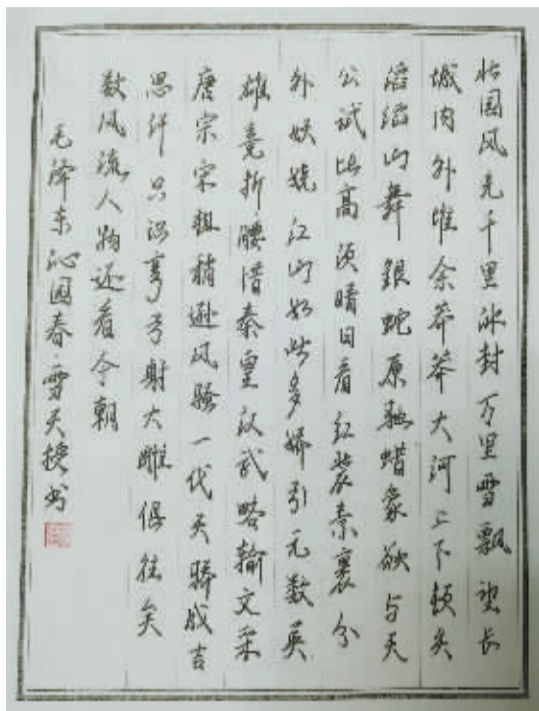 北国风光千里冰封万里雪飘望长
城内外惟余莽莽大河上下顿失
滔滔山舞银蛇原驰蜡象欲与天
公试比高须晴日看红装素裹分
外妖娆江山如此多娇引无数英
雄竞折腰惜秦皇汉武略输文采
唐宗宋祖稍逊风骚一代天骄成吉
思汗只识弯弓射大雕俱往矣
数风流人物还看今朝
毛泽东沁园春·雪天授书